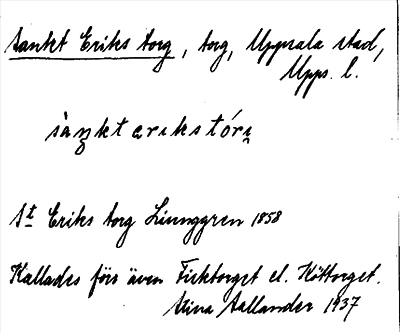 Sankt Eriks torg, torg, Uppsala stad,
Upps. l.
sàŋkt erikstórj
St Eriks torg Linnggren 1858
Kallades förr även Fisktorget el. Kötttorget.
Stina Sallander 1937